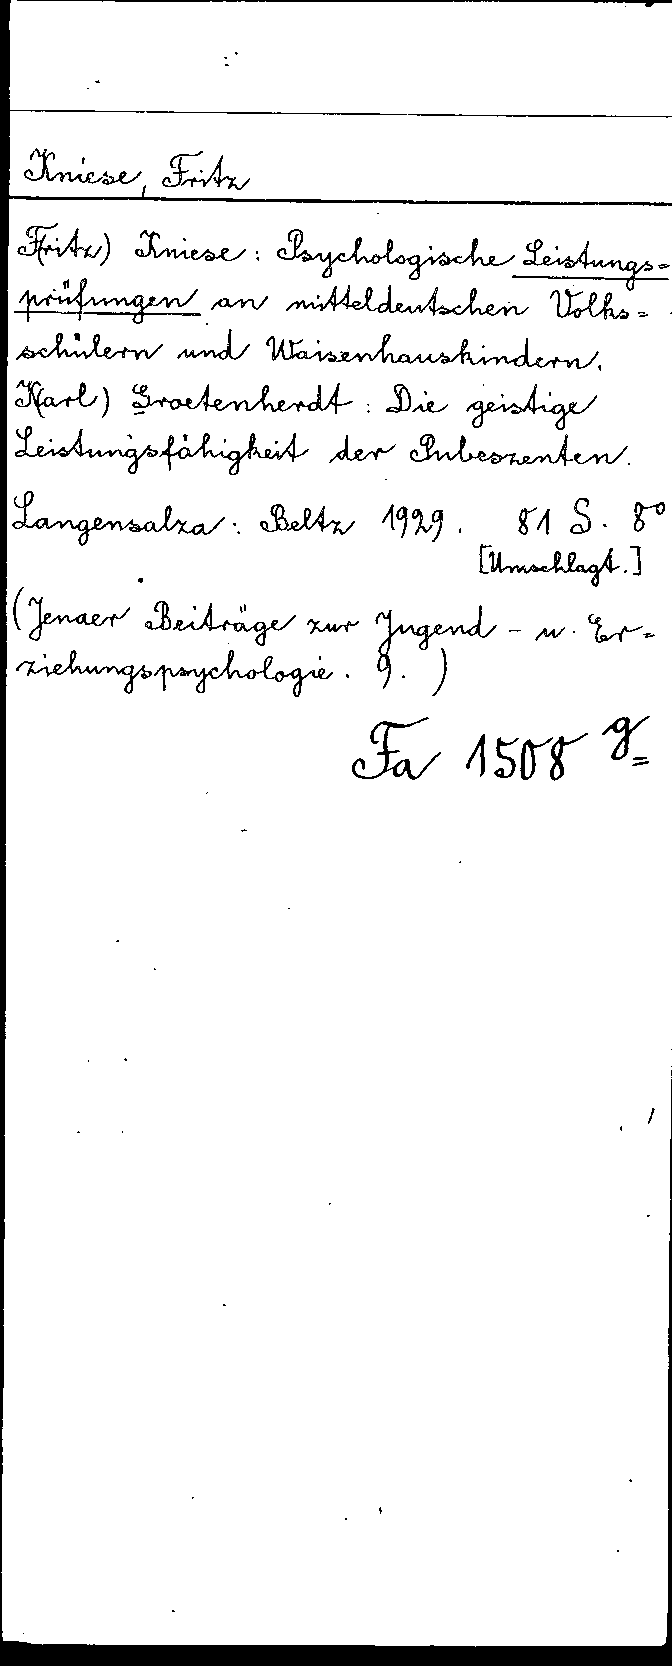 Kniese, Fritz
F(ritz) Kniese: Psychologische Leistungs=
prüfungen an mitteldeutschen Volks=
schülern und Waisenhauskindern.
K(arl) Groetenherdt: Die geistige
Leistungsfähigkeit der Pubeszenten.
Langensalza: Beltz 1929. 81 S. 8°
[Umschlagt.]
(Jenaer Beiträge zur Jugend- u. Er=
ziehungspsychologie. 9.)
Fa 1508 g=